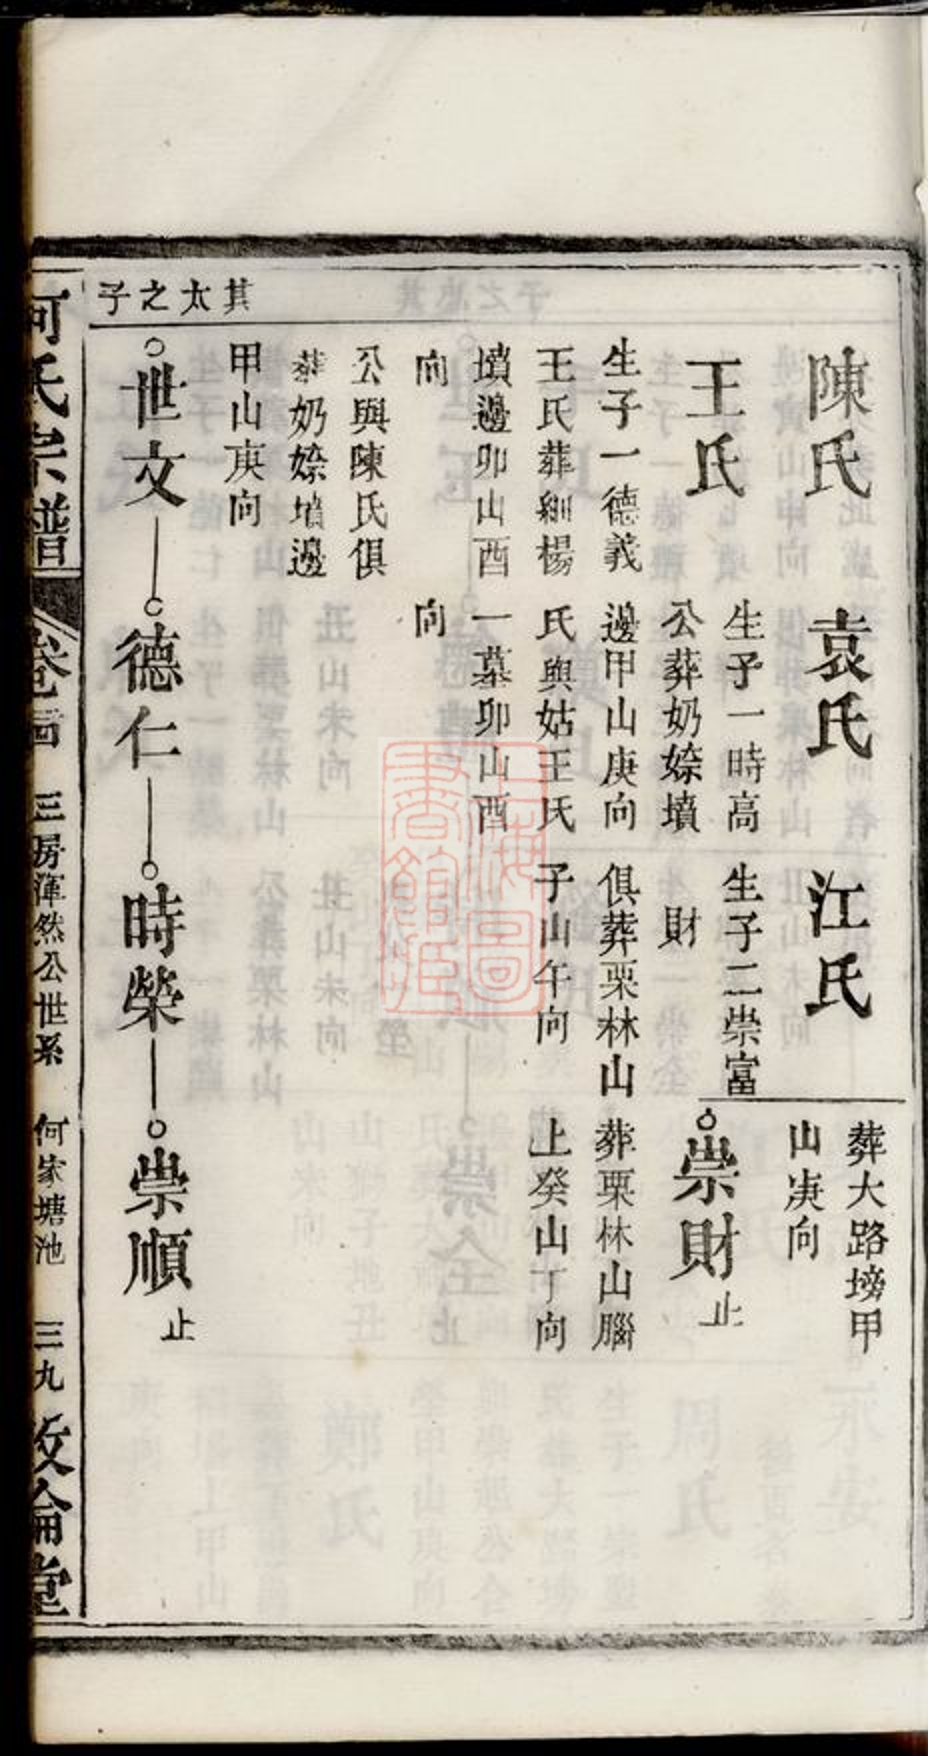 其太之子
陳氏　袁氏　江氏
葬大路塝甲
山庚向
王氏
生子一時高
生子二崇富
財
崇財止
公葬奶㛮墳
生子一德義
邊甲山庚向
俱葬栗林山
葬栗林山腦
王氏葬細楊
氏與姑王氏
子山午向
上癸山丁向
墳邊卯山酉
一墓卯山酉
向
向
公與陳氏俱
葬奶㛮墳邊
甲山庚向
世文　德仁　時榮　崇順止
何氏宗譜
三房渾然公世系
何家塘池
三九
敦倫堂
上海圖書館藏